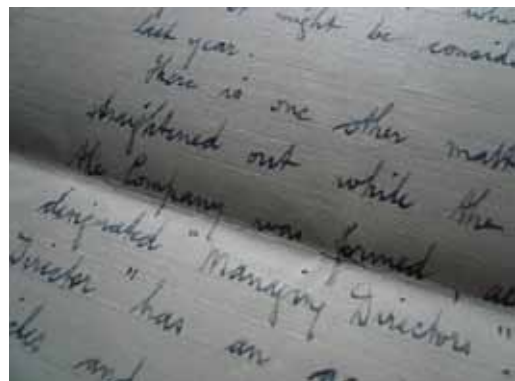 might be consid
last year.
There is one other matt
straightened out while the
the Company was formed,
designated "Managing Directors"
Director" has an
and